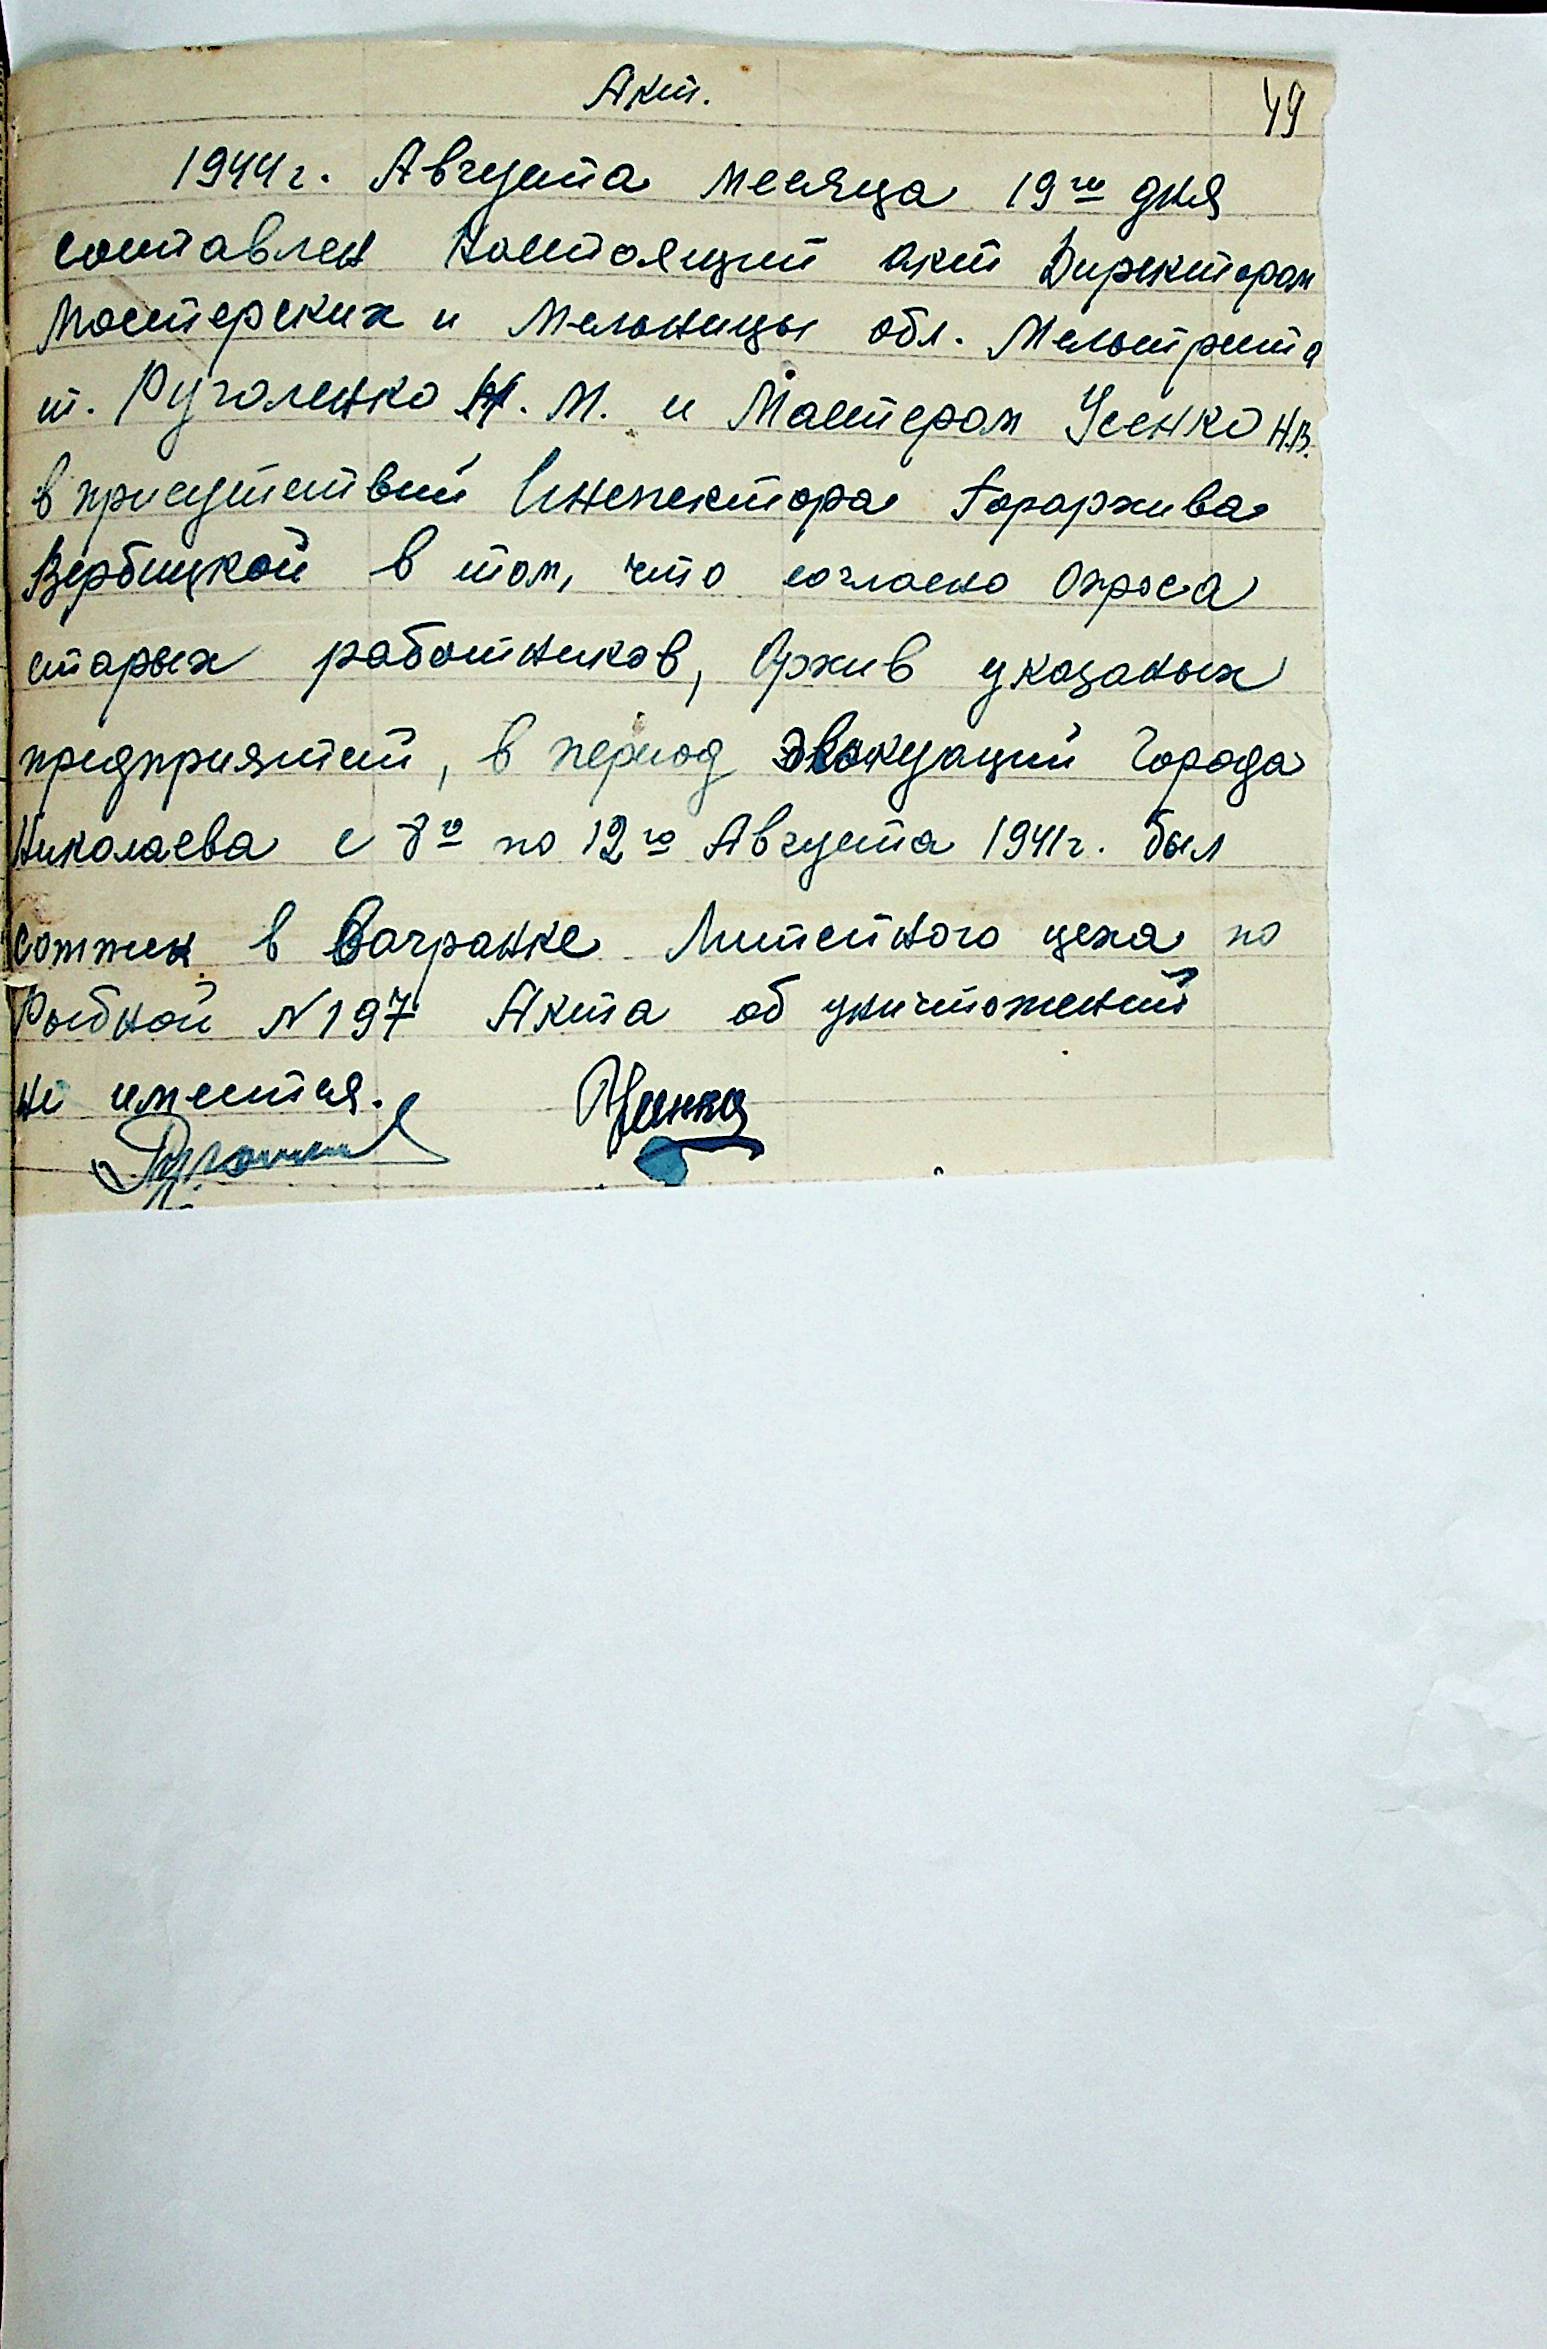 Акт.
49
1944г. Августа месяца 19го дня
составлен настоящий акт Директором
Мастерских и Мельницы обл. Мельтреста
т. Ругаленко Н. М. и Мастером Усенко Н.В.
в присутствий Инспектора Горархива
Вербицкой в том, что согласно опроса
старых работников, Архив указаных
предприятий, в период эвакуаций Города
Николаева с 8го по 12го Августа 1941г. был
сожжен в Вагранке Литейного цеха по
Рыбной №197 Акта об уничтожений
не имеется.